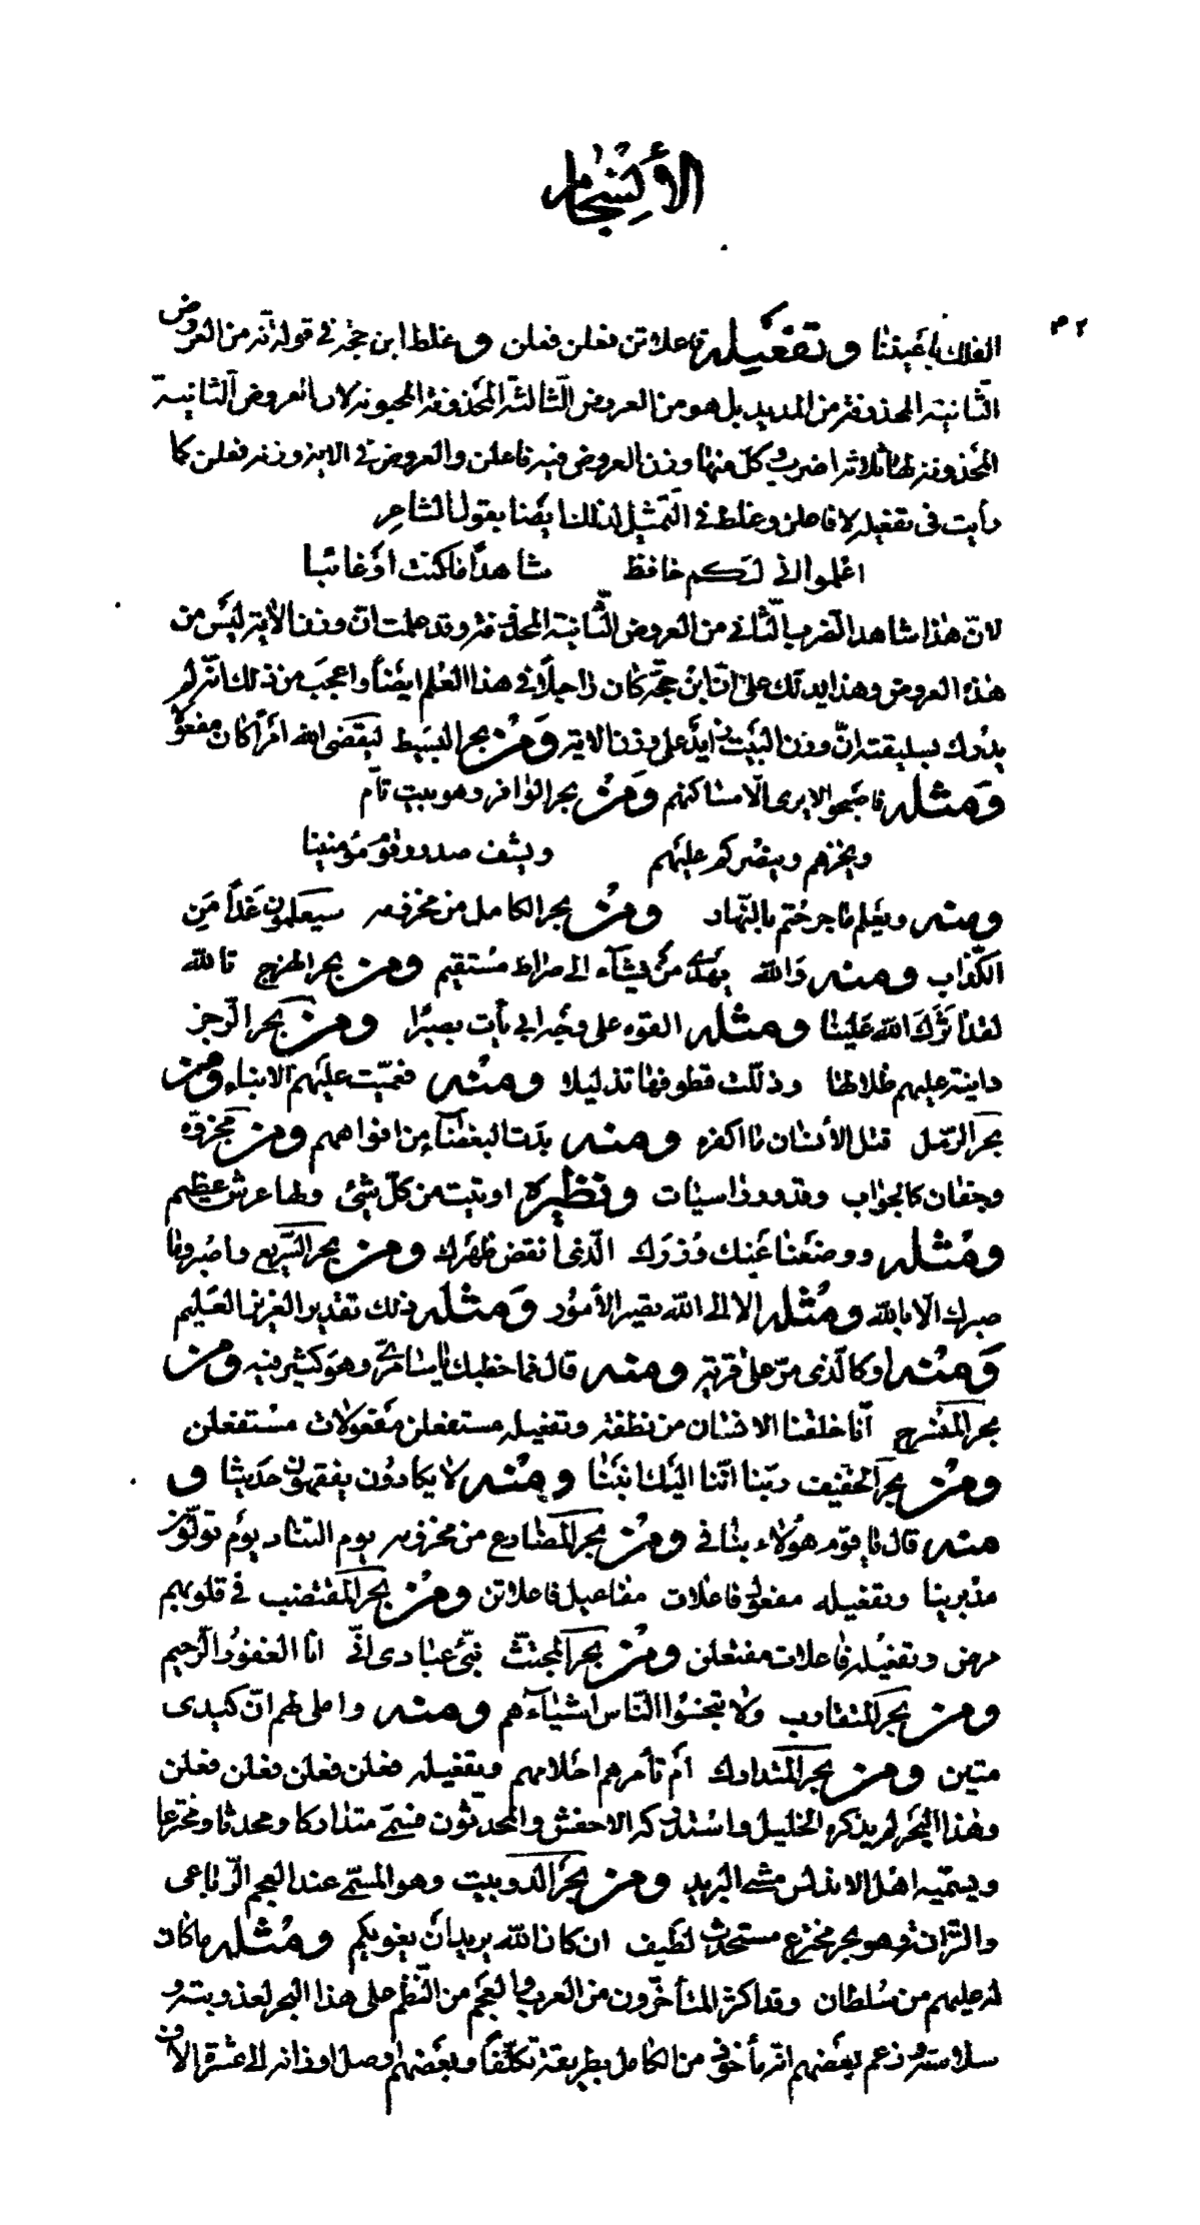 الأنسجام
٤٢
الفلك بأعيننا وتفعيله فاعلاتن فعلن فعلن وغلط ابن حجة في قوله انه من العروض
الثانية المحذوفة من المديد بل هو من العروض الثالثة المحذوفة المخبونة لان العروض الثانية
المحذوفة لها ثلاثة اضرب كل منها وزن العروض فيه فاعلن والعروض في الابتر وزنه فعلن كما
رأيت في تفعيله لا فاعلن وغلط في التمثيل لذلك ايضا بقول الشاعر
اعلموا اني لكم حافظ شاهدا ما كنت او غائبا
لان هذا شاهد الضرب الثاني من العروض الثانية المحذوفة وقد علمت ان وزن الابتر ليس من
هذه العروض وهذا يدلك على ان ابن حجة كان راجلا في هذا العلم ايضا واعجب من ذلك انه لم
يدرك بسليقته ان وزن البيت زايد على وزن الابتر ومن بحر البسيط ليقضي الله امرا كان مفعولا
ومثله فاصبحوا لا يرى الا مساكنهم ومن بحر الوافر وهو بيت تام
ويخزهم وينصركم عليهم ويشف صدور قوم مؤمنينا
ومنه ويعلم ما جرحتم بالنهار ومن بحر الكامل من مجزوه سيعلمون غدا من
الكذاب ومنه والله يهدي من يشآء الى صراط مستقيم ومن بحر الهزج تالله
لقد آثرك الله علينا ومثله القوه على وجه ابي يأت بصيرا ومن بحر الرجز
دانية عليهم ظلالها وذللت قطوفها تذليلا ومنه فعميت عليهم الانباء ومن
بحر الرمل قتل الأنسان ما اكفره ومنه بدت البغضآء من افواههم ومن مجزوه
وجفان كالجواب وقدور راسيات ونظيره اوتيت من كل شئ ولها عرش عظيم
ومثله ووضعنا عنك وزرك الذي انقض ظهرك ومن بحر السريع واصبر وما
صبرك الا بالله ومثله الا الى الله تصير الأمور ومثله ذلك تقدير العزيز العليم
ومنه او كالذي مر على قرية ومنه قال فما خطبك يا سامري وهو كثير فيه ومن
بحر المنسرح انا خلقنا الانسان من نطفة وتفعيله مستفعلن مفعولات مستفعلن
ومن بحر الخفيف ربنا اننا اليك انبنا ومنه لا يكادون يفقهون حديثا و
منه قال يا قوم هؤلاء بناتي ومن بحر المضارع من مجزوه يوم التناد يوم تولون
مدبرينا وتفعيله مفعول فاعلات مفاعيل فاعلاتن ومن بحر المقتضب في قلوبهم
مرض وتفعيله فاعلات مفتعلن ومن بحر المجتث نبئ عبادي اني انا الغفور الرحيم
ومن بحر المتقارب ولا تبخسوا الناس اشيآءهم ومنه واملي لهم ان كيدي
متين ومن بحر المتدارك أم تأمرهم احلامهم وتفعيله فعلن فعلن فعلن فعلن
وهذا البحر لم يذكره الخليل واستدركه الاخفش والمحدثون فسمي متداركا ومحدثا ومخترعا
ويسميه اهل الاندلس مشي البريد ومن بحر الدوبيت وهو المسمى عند العجم الرباعي
والترانه وهو بحر مخترع مستحدث لطيف ان كان الله يريد أن يغويكم ومثله ما كان
له عليهم من سلطان وقد اكثر المتأخرون من العرب والعجم من النظم على هذا البحر لعذوبته و
سلاسته وزعم بعضهم انه مأخوذ من الكامل بطريقة تكلفا وبعضهم اوصل اوزانه الى عشرة الاف